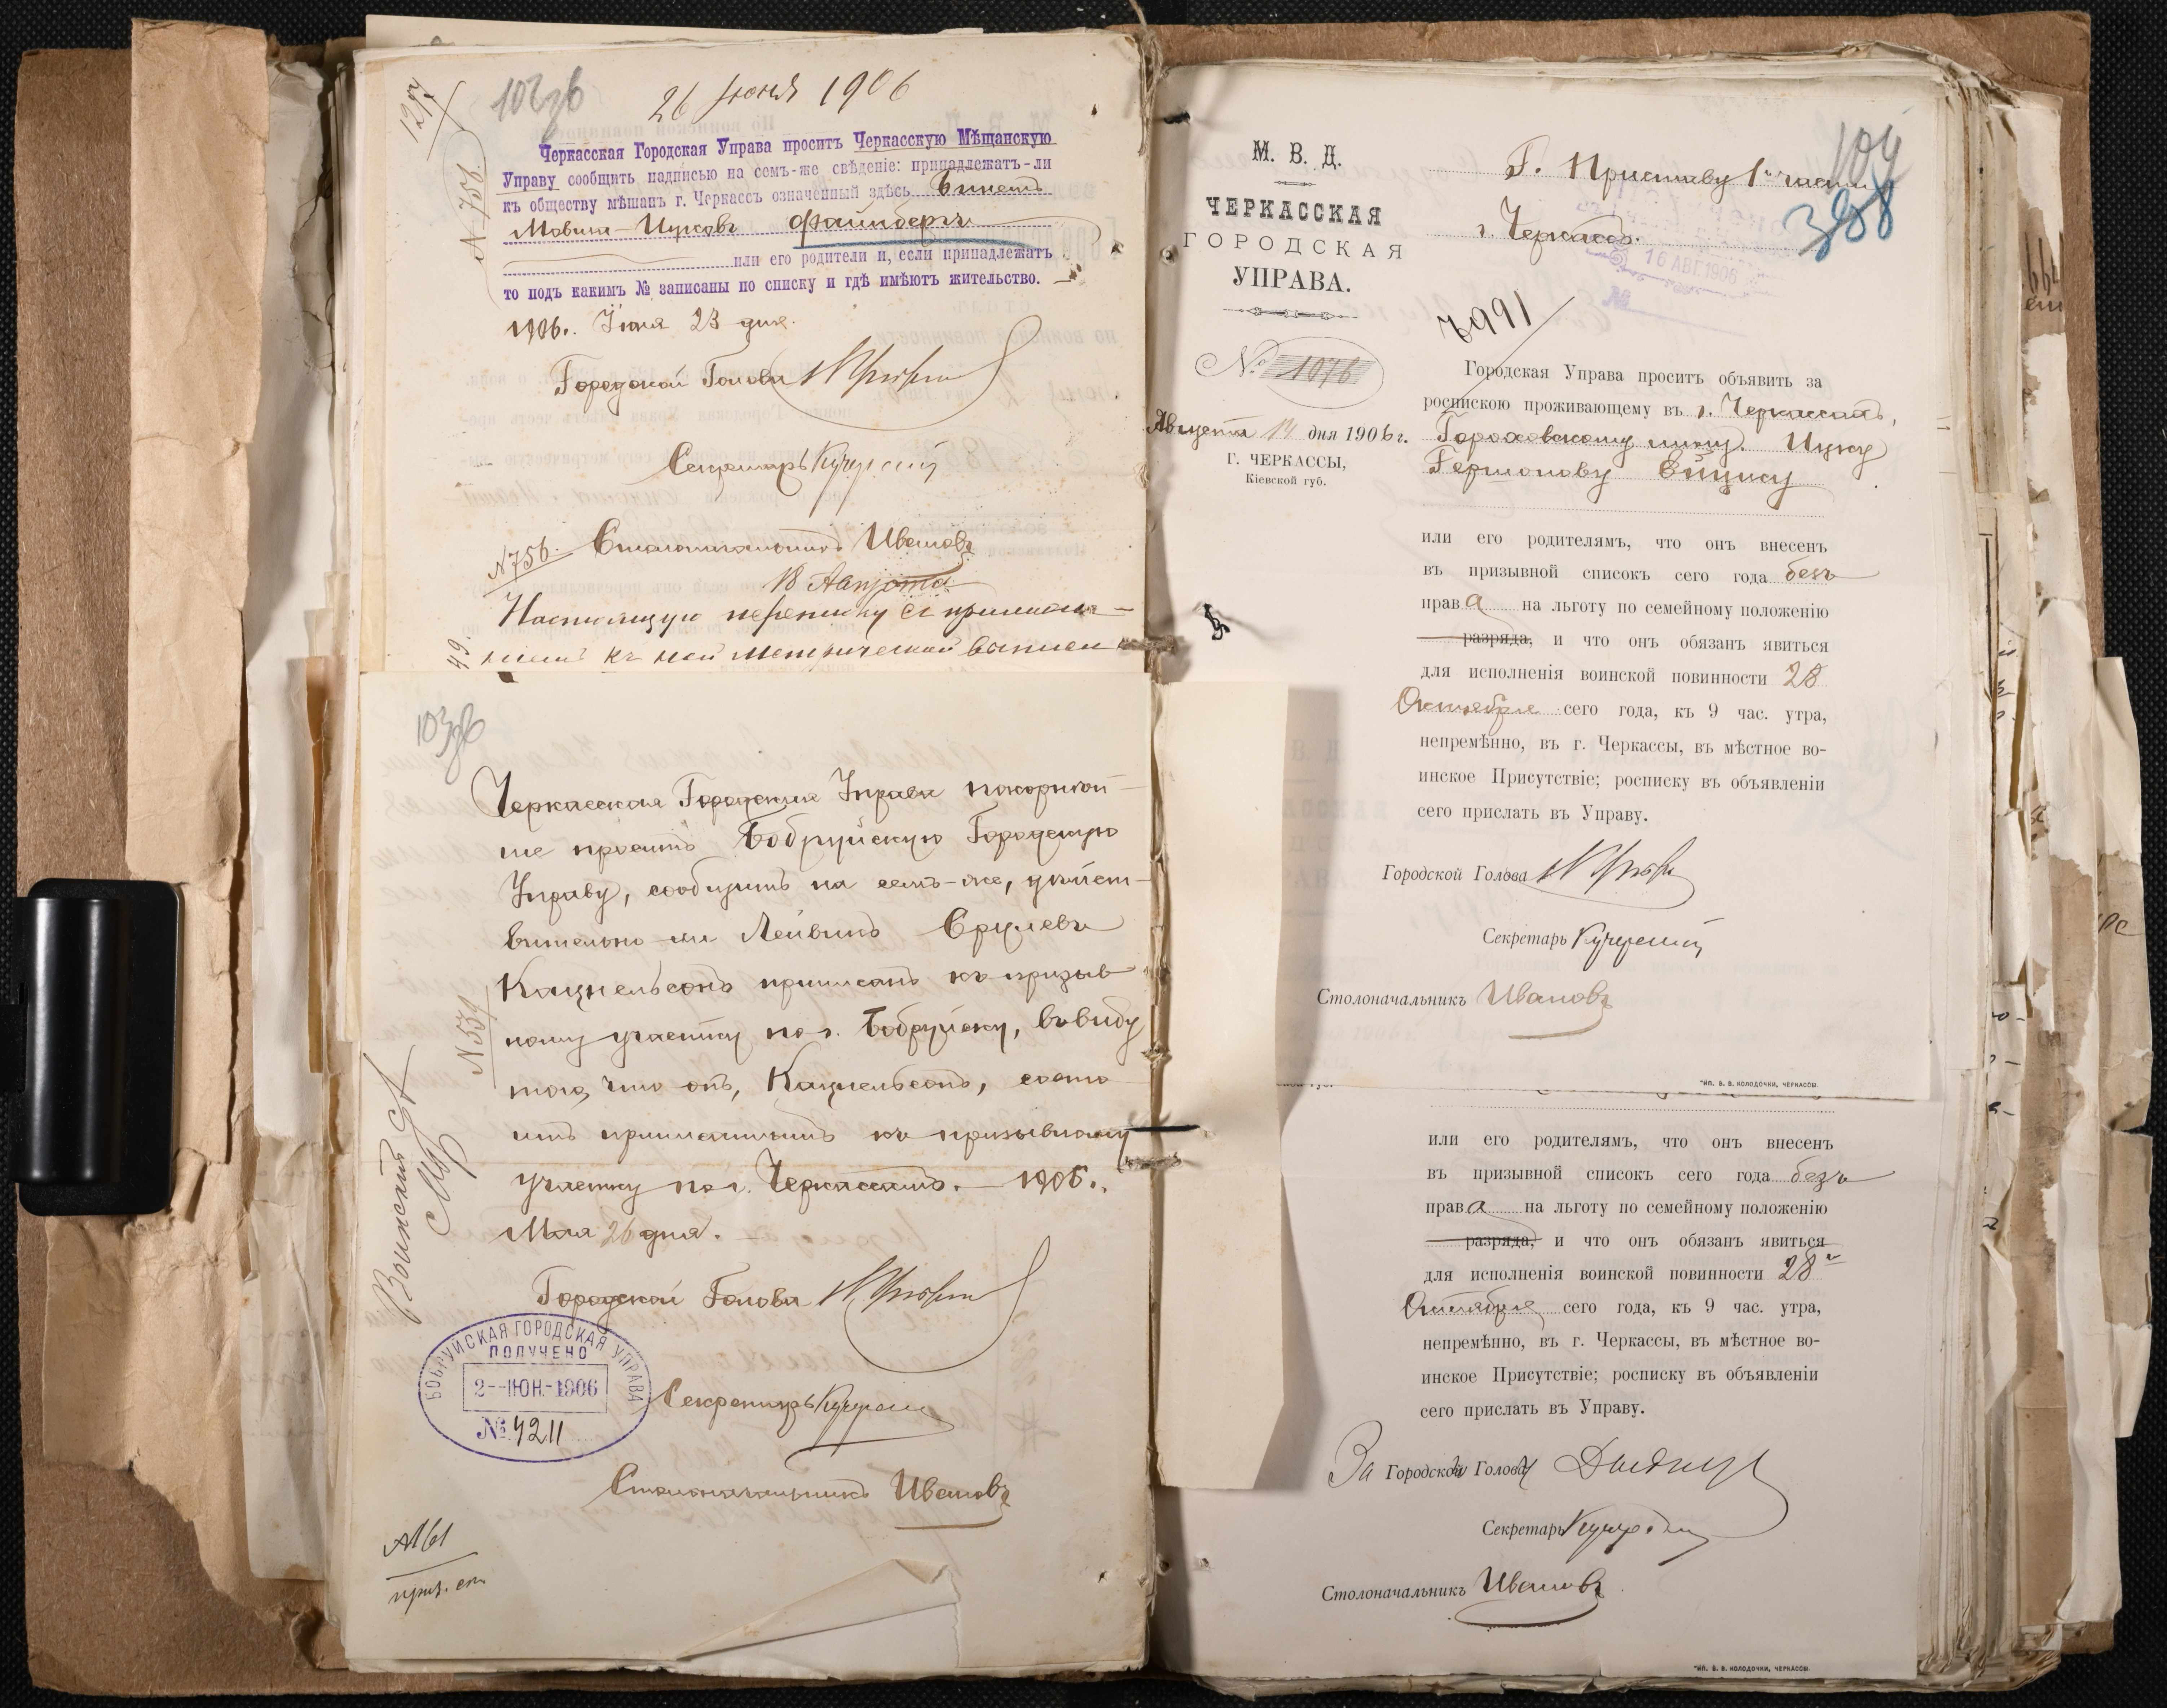 1277
102 об
26 Июня 1906
N 756.
Черкасская Городская Управа проситъ Черкасскую Мѣщанскую
Управу сообщить надписью на семъ-же свѣдѣніе: принадлежатъ-ли
къ обществу мѣщанъ г. Черкассъ означенный здѣсь
Мовша-Ицковъ Файнбергъ
или его родители и, если принадлежатъ
то подъ какимъ № записаны по списку и гдѣ имѣютъ жительство.
1906. Іюня 23 дня.
Городской Голова
Секретарь
Столоначальникъ Ивановъ
N 756.
18 Августа
Настоящую переписку съ приложе-
ніемъ къ ней метрической выписи
49.
103 об
Черкасская Городская Управа покорнѣй-
ше проситъ Бобруйскую Городскую
Управу, сообщить на семъ-же, дѣйст-
вительно-ли Лейвикъ Срулевъ
Кацнельсонъ приписанъ къ призыв-
ному участку по г. Бобруйску, въ виду
того, что онъ, Кацнельсонъ, состо-
итъ приписаннымъ къ призывному
участку по г. Черкассамъ. — 1906 г.
Мая 26 дня.
N 537
Воинский Ст
Городской Голова
БОБРУЙСКАЯ ГОРОДСКАЯ УПРАВА
ПОЛУЧЕНО
2-ІЮН.-1906
№ 4211
Секретарь
Столоначальникъ Ивановъ
№161
приз. сп.
М. В. Д.
ЧЕРКАССКАЯ
ГОРОДСКАЯ
УПРАВА.
№ 1076
Августа 14 дня 1906 г.
Г. ЧЕРКАССЫ,
Кіевской губ.
104
308
Г. Приставу 1й части
г. Черкассъ.
16 АВГ. 1906
№
7991
Городская Управа проситъ объявить за
роспискою проживающему въ г. Черкассахъ,
Гороховскому мѣщ. Ицку
Гершонову
или его родителямъ, что онъ внесенъ
въ призывной списокъ сего года безъ
права на льготу по семейному положенію
разряда, и что онъ обязанъ явиться
для исполненія воинской повинности 28
Октября сего года, къ 9 час. утра,
непремѣнно, въ г. Черкассы, въ мѣстное во-
инское Присутствіе; росписку въ объявленіи
сего прислать въ Управу.
Городской Голова
Секретарь
Столоначальникъ Ивановъ
ТИП. В. В. КОЛОДОЧКИ, ЧЕРКАССЫ.
или его родителямъ, что онъ внесенъ
въ призывной списокъ сего года безъ
права на льготу по семейному положенію
разряда, и что онъ обязанъ явиться
для исполненія воинской повинности 28го
Октября сего года, къ 9 час. утра,
непремѣнно, въ г. Черкассы, въ мѣстное во-
инское Присутствіе; росписку въ объявленіи
сего прислать въ Управу.
За Городского Голову
Секретарь
Столоначальникъ Ивановъ
ТИП. В. В. КОЛОДОЧКИ, ЧЕРКАССЫ.